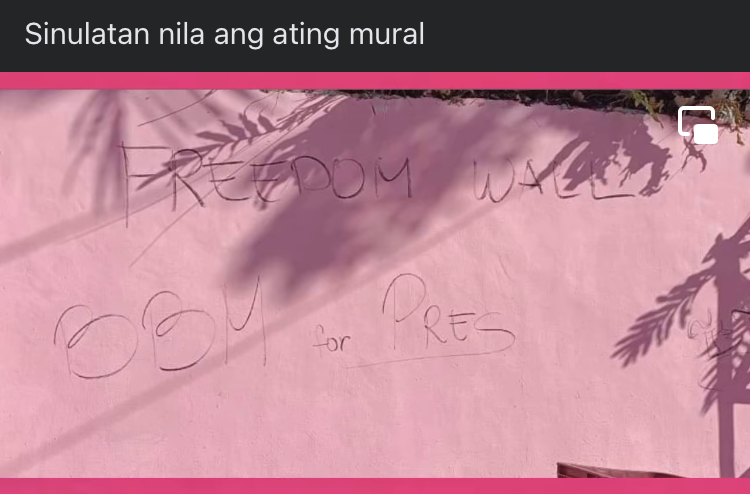 Sinulatan nila ang ating mural
FREEDOM WALL
BBM for PRES